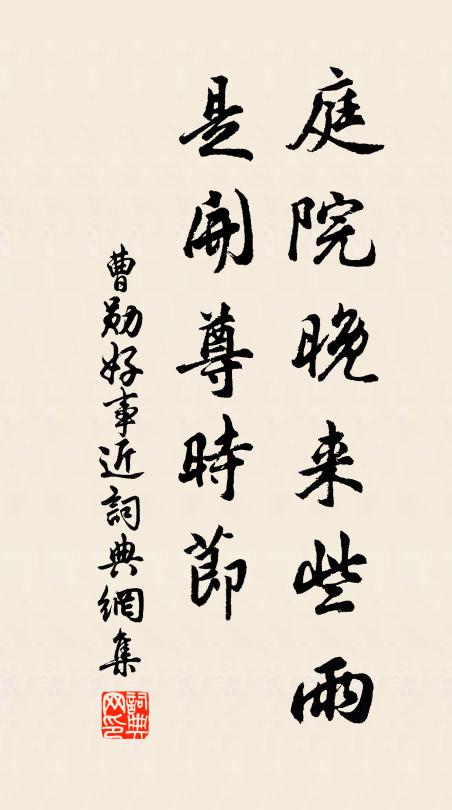 庭院晚来些雨
是開尊時節
曹勛好事近詞典網集
詞典网印